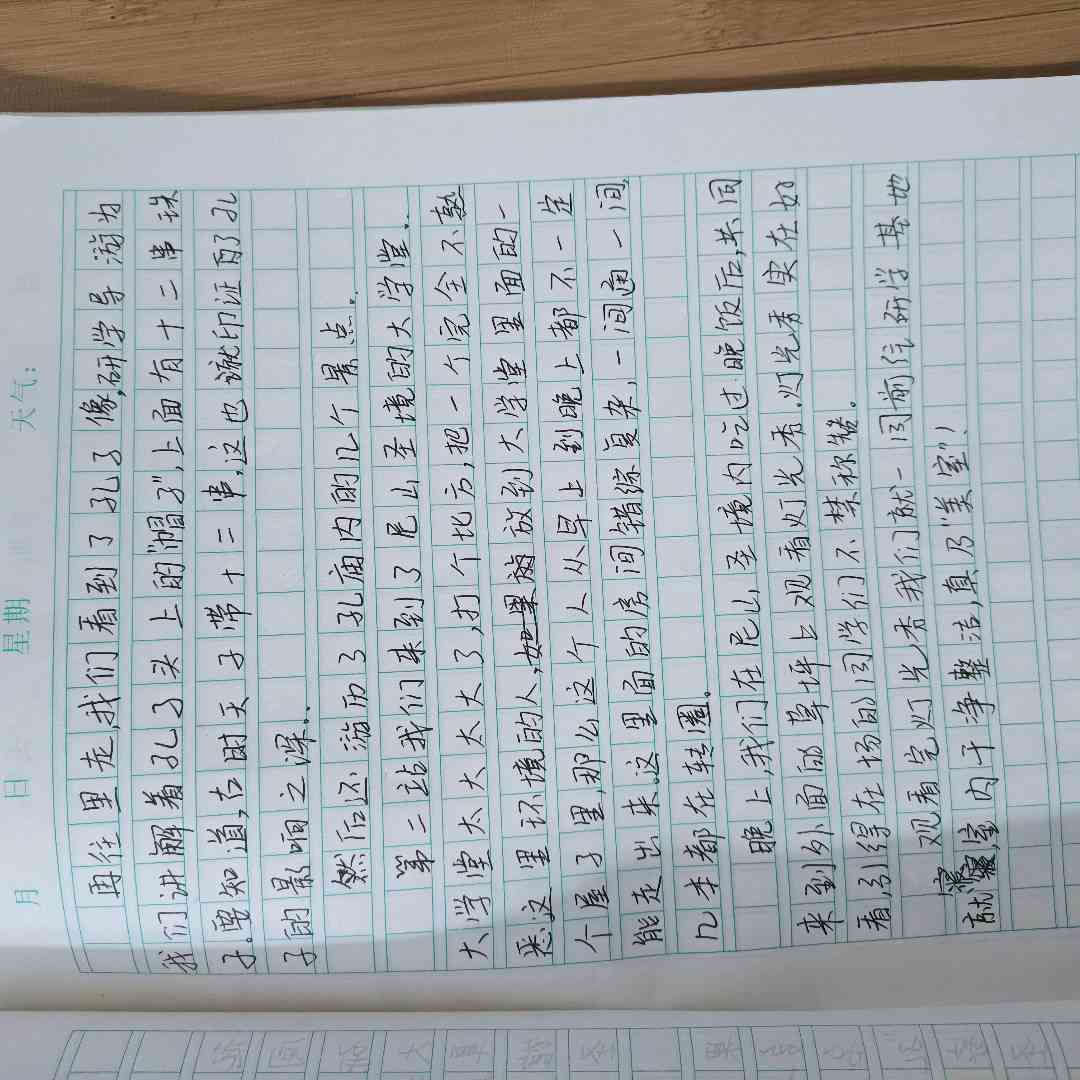 月 日 星期 天气:
再往里走,我们看到了孔子像,研学导游为
我们讲解着孔子头上的"帽子",上面有十二串珠
子。要知道,古时天子带十二串,这也就印证了孔
子的影响之深。
然后还游历了孔庙内的几个景点。
第二站我们来到了尼山圣境的大学堂。
大学堂太太太大了,打个比方,把一个完全不熟
悉这里环境的人,放到大学堂里面的一
个屋子里,那么这个人从早上到晚上都不一定
能走出来。这里面的房间错综复杂,一间通一间,
几本都在转圈。
晚上,我们在尼山圣境内吃过晚饭后,共同
来到外面的草坪上观看灯光秀。灯光秀实在好
看,引得在场的同学们不禁称赞。
观看完灯光秀我们就一同前往研学基地
就寝,室内干净整洁,真乃"美室"!